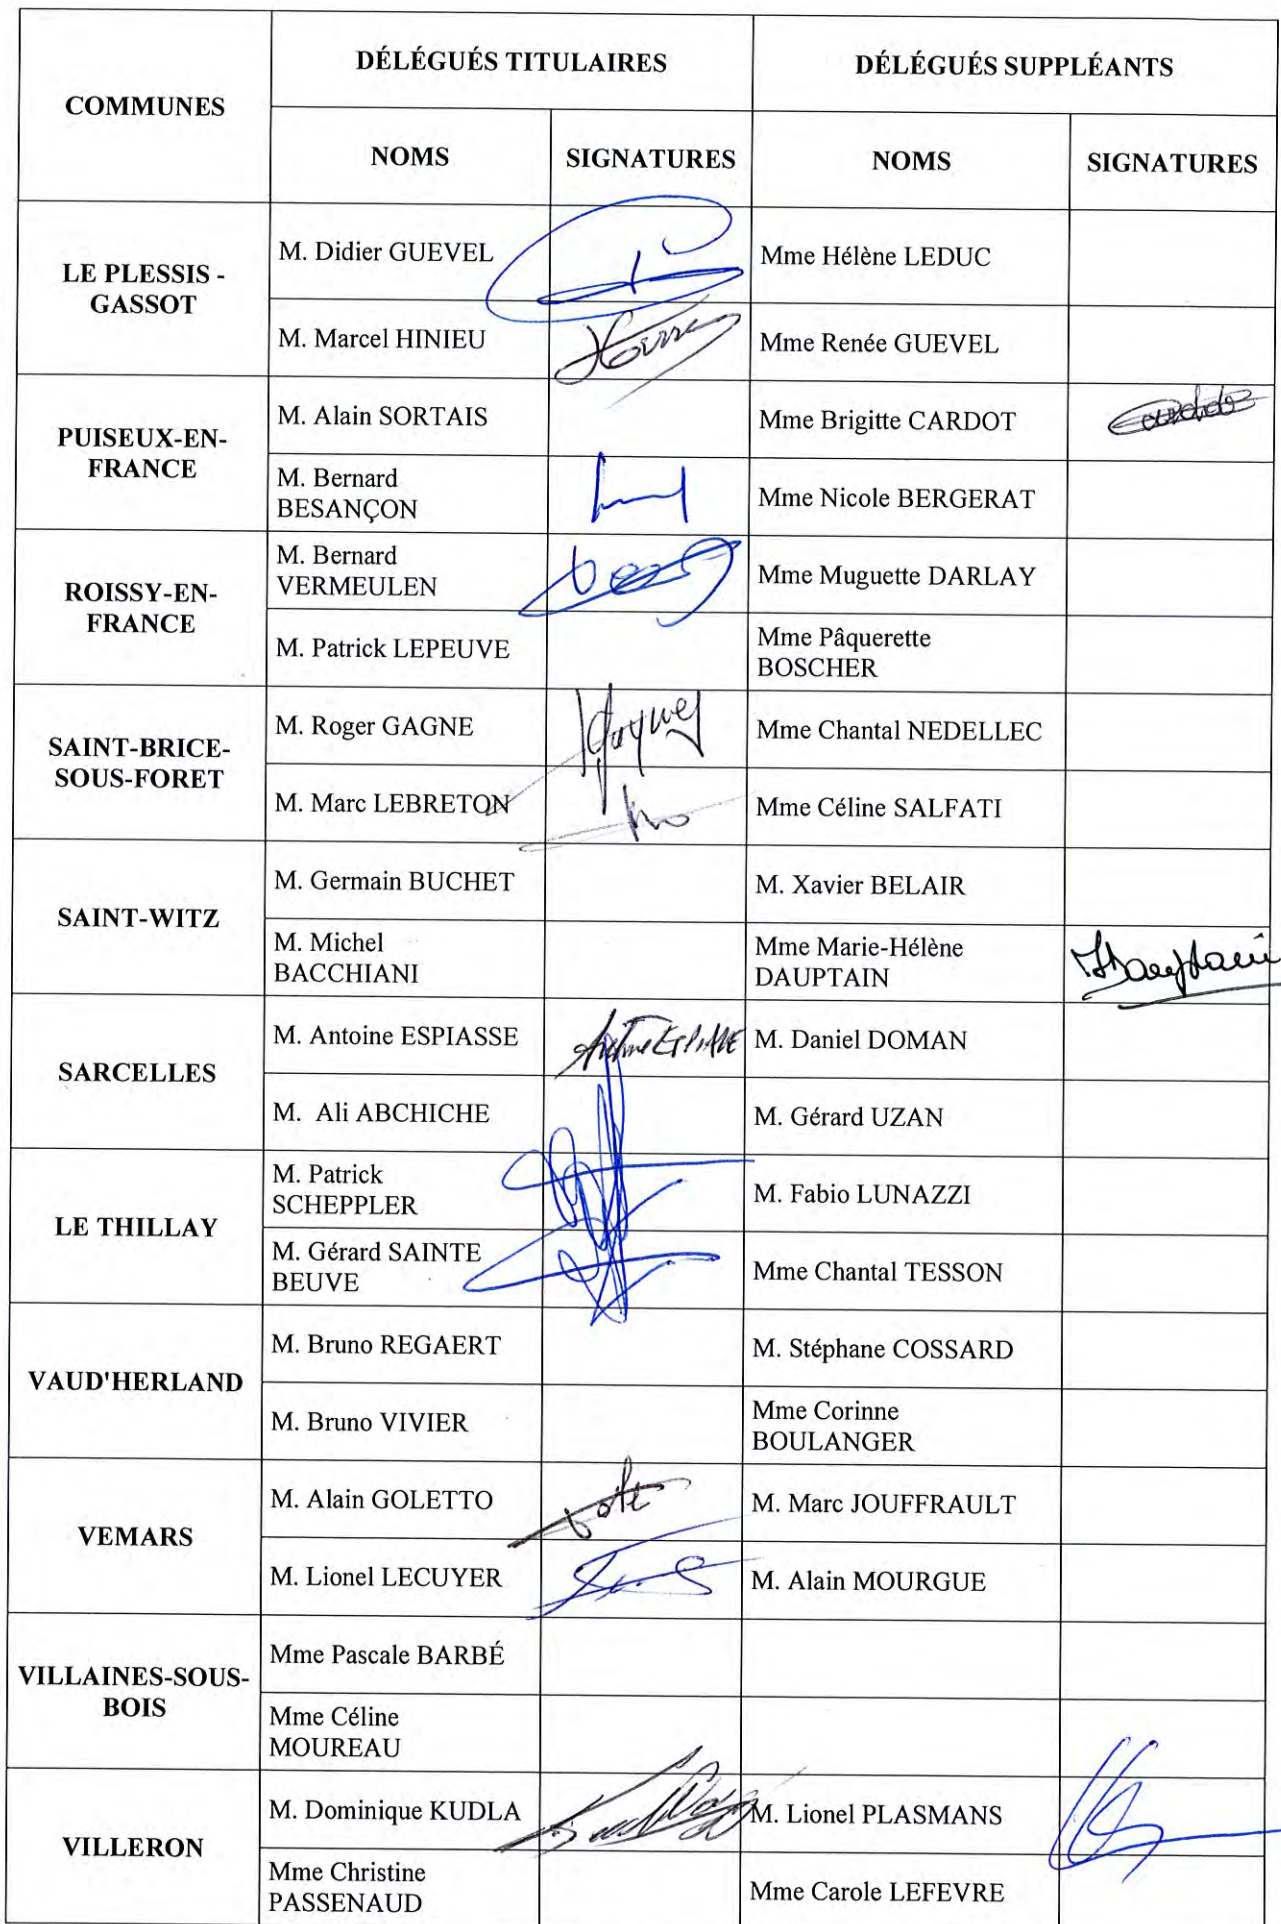 COMMUNES
DÉLÉGUÉS TITULAIRES
DÉLÉGUÉS SUPPLÉANTS
NOMS
SIGNATURES
NOMS
SIGNATURES
LE PLESSIS -
GASSOT
M. Didier GUEVEL
Mme Hélène LEDUC
M. Marcel HINIEU
Mme Renée GUEVEL
PUISEUX-EN-
FRANCE
M. Alain SORTAIS
Mme Brigitte CARDOT
M. Bernard
BESANÇON
Mme Nicole BERGERAT
ROISSY-EN-
FRANCE
M. Bernard
VERMEULEN
Mme Muguette DARLAY
M. Patrick LEPEUVE
Mme Pâquerette
BOSCHER
SAINT-BRICE-
SOUS-FORET
M. Roger GAGNE
Mme Chantal NEDELLEC
M. Marc LEBRETON
Mme Céline SALFATI
SAINT-WITZ
M. Germain BUCHET
M. Xavier BELAIR
M. Michel
BACCHIANI
Mme Marie-Hélène
DAUPTAIN
SARCELLES
M. Antoine ESPIASSE
Antoine ESPIASSE
M. Daniel DOMAN
M. Ali ABCHICHE
M. Gérard UZAN
LE THILLAY
M. Patrick
SCHEPPLER
M. Fabio LUNAZZI
M. Gérard SAINTE
BEUVE
Mme Chantal TESSON
VAUD'HERLAND
M. Bruno REGAERT
M. Stéphane COSSARD
M. Bruno VIVIER
Mme Corinne
BOULANGER
VEMARS
M. Alain GOLETTO
M. Marc JOUFFRAULT
M. Lionel LECUYER
M. Alain MOURGUE
VILLAINES-SOUS-
BOIS
Mme Pascale BARBÉ
Mme Céline
MOUREAU
VILLERON
M. Dominique KUDLA
M. Lionel PLASMANS
Mme Christine
PASSENAUD
Mme Carole LEFEVRE